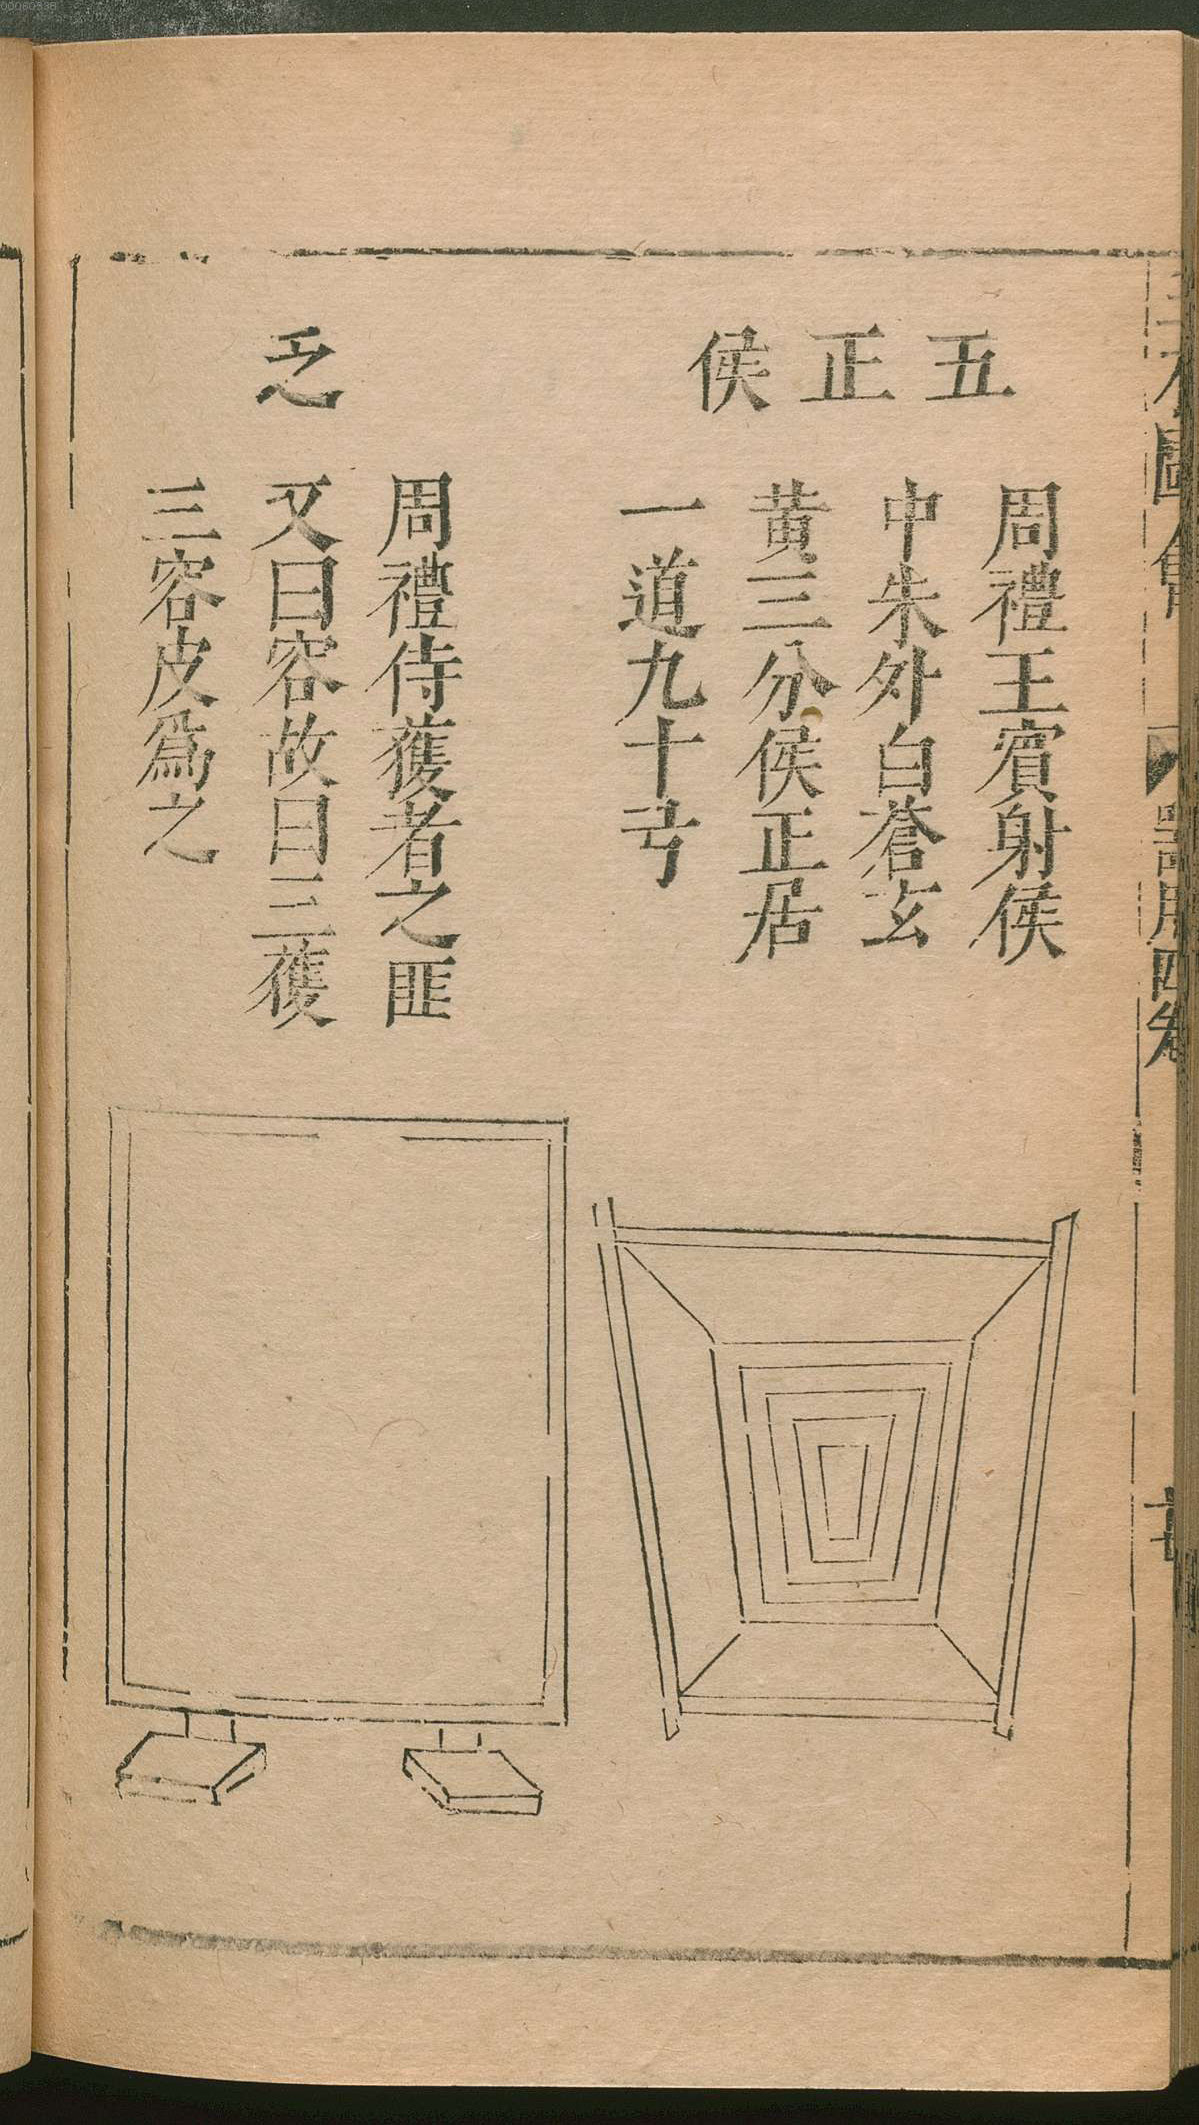 五正侯
周禮王賓射侯
中朱外白蒼玄
黃三分侯正居
一道九十弓
乏
周禮侍獲者之匪
又曰容故曰三獲
三容皮爲之
器用四卷
00060338